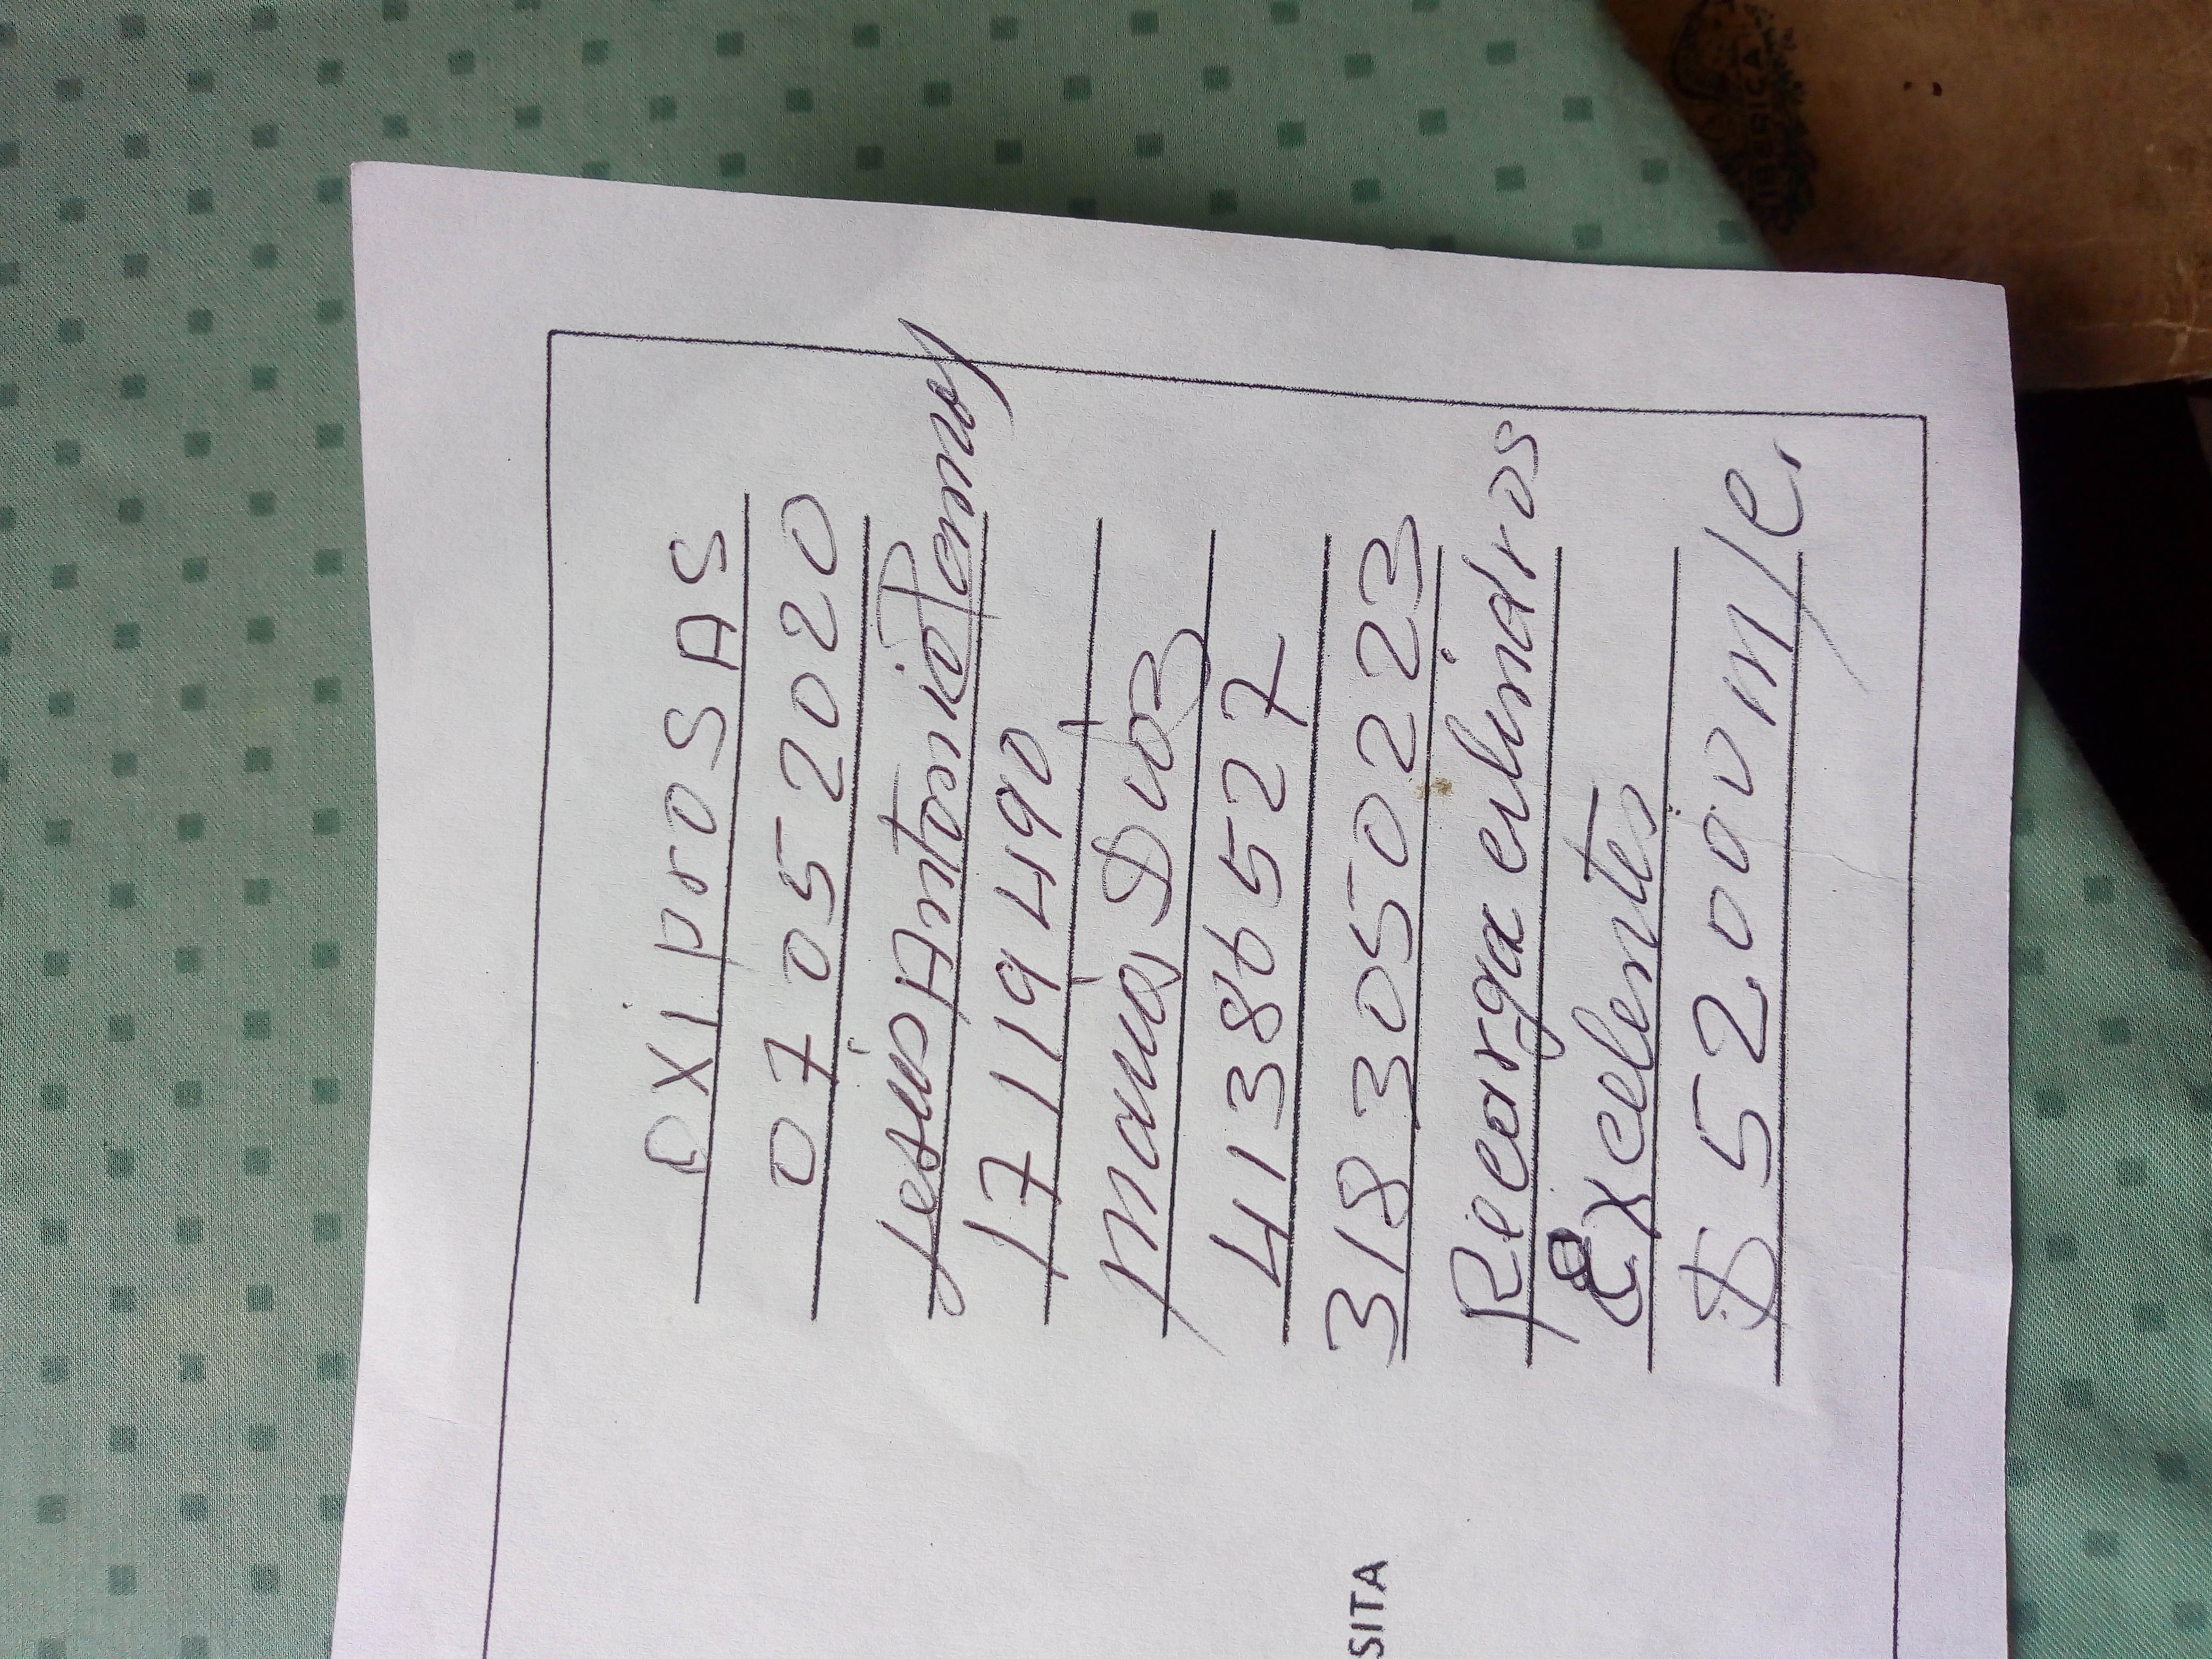 OXiproSAS
07052020
Jesus Antonio Pemus
17119490
Maria Dias
41386527
3183050223
Recarga cilindros
Excelentes
$52.000m/c.
SITA